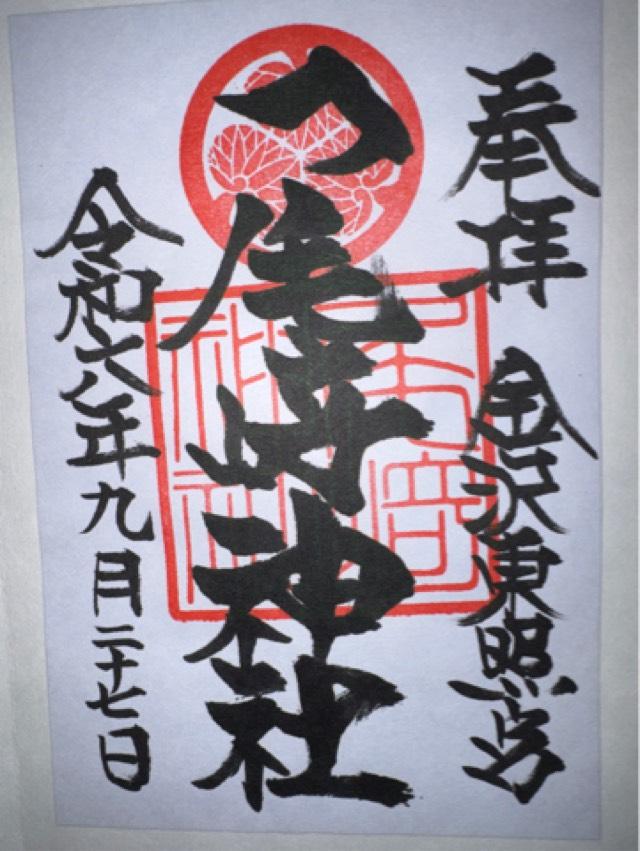 奉拝 金沢東照宮
尾崎神社
令和六年九月二十七日